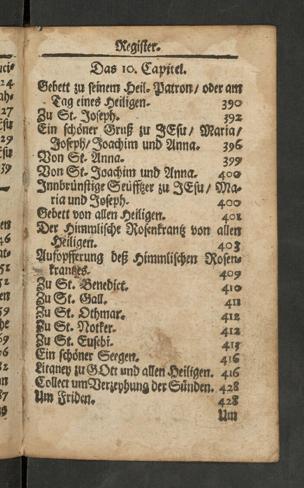 Register.
Das 10. Capitel.
Gebett zu seinem Heil. Patron/ oder am
Tag eines Heiligen. 390
Zu St. Joseph. 392
Ein schöner Gruß zu JEsu/ Maria/
Joseph/ Joachim und Anna. 396
Von St. Anna. 399
Von St. Joachim und Anna. 400
Innbrünstige Seüfftzer zu JEsu/ Ma-
ria und Joseph. 400
Gebett von allen Heiligen. 401
Der Himmlische Rosenkrantz von allen
Heiligen. 403
Aufopfferung deß Himmlischen Rosen-
krantzes. 409
Zu St. Benedict. 410
Zu St. Gall. 411
Zu St. Othmar. 412
Zu St. Notker. 412
Zu St. Eusebi. 413
Ein schöner Seegen. 416
Litaney zu GOtt und allen Heiligen. 416
Collect um Verzeyhung der Sünden. 428
Um Friden. 428
Um